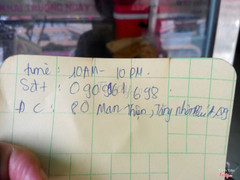 time : 10AM - 10PM.
Sđt : 090 961 698
Đ C : 20 Man Thiện, Tăng Nhơn Phú A, Q9